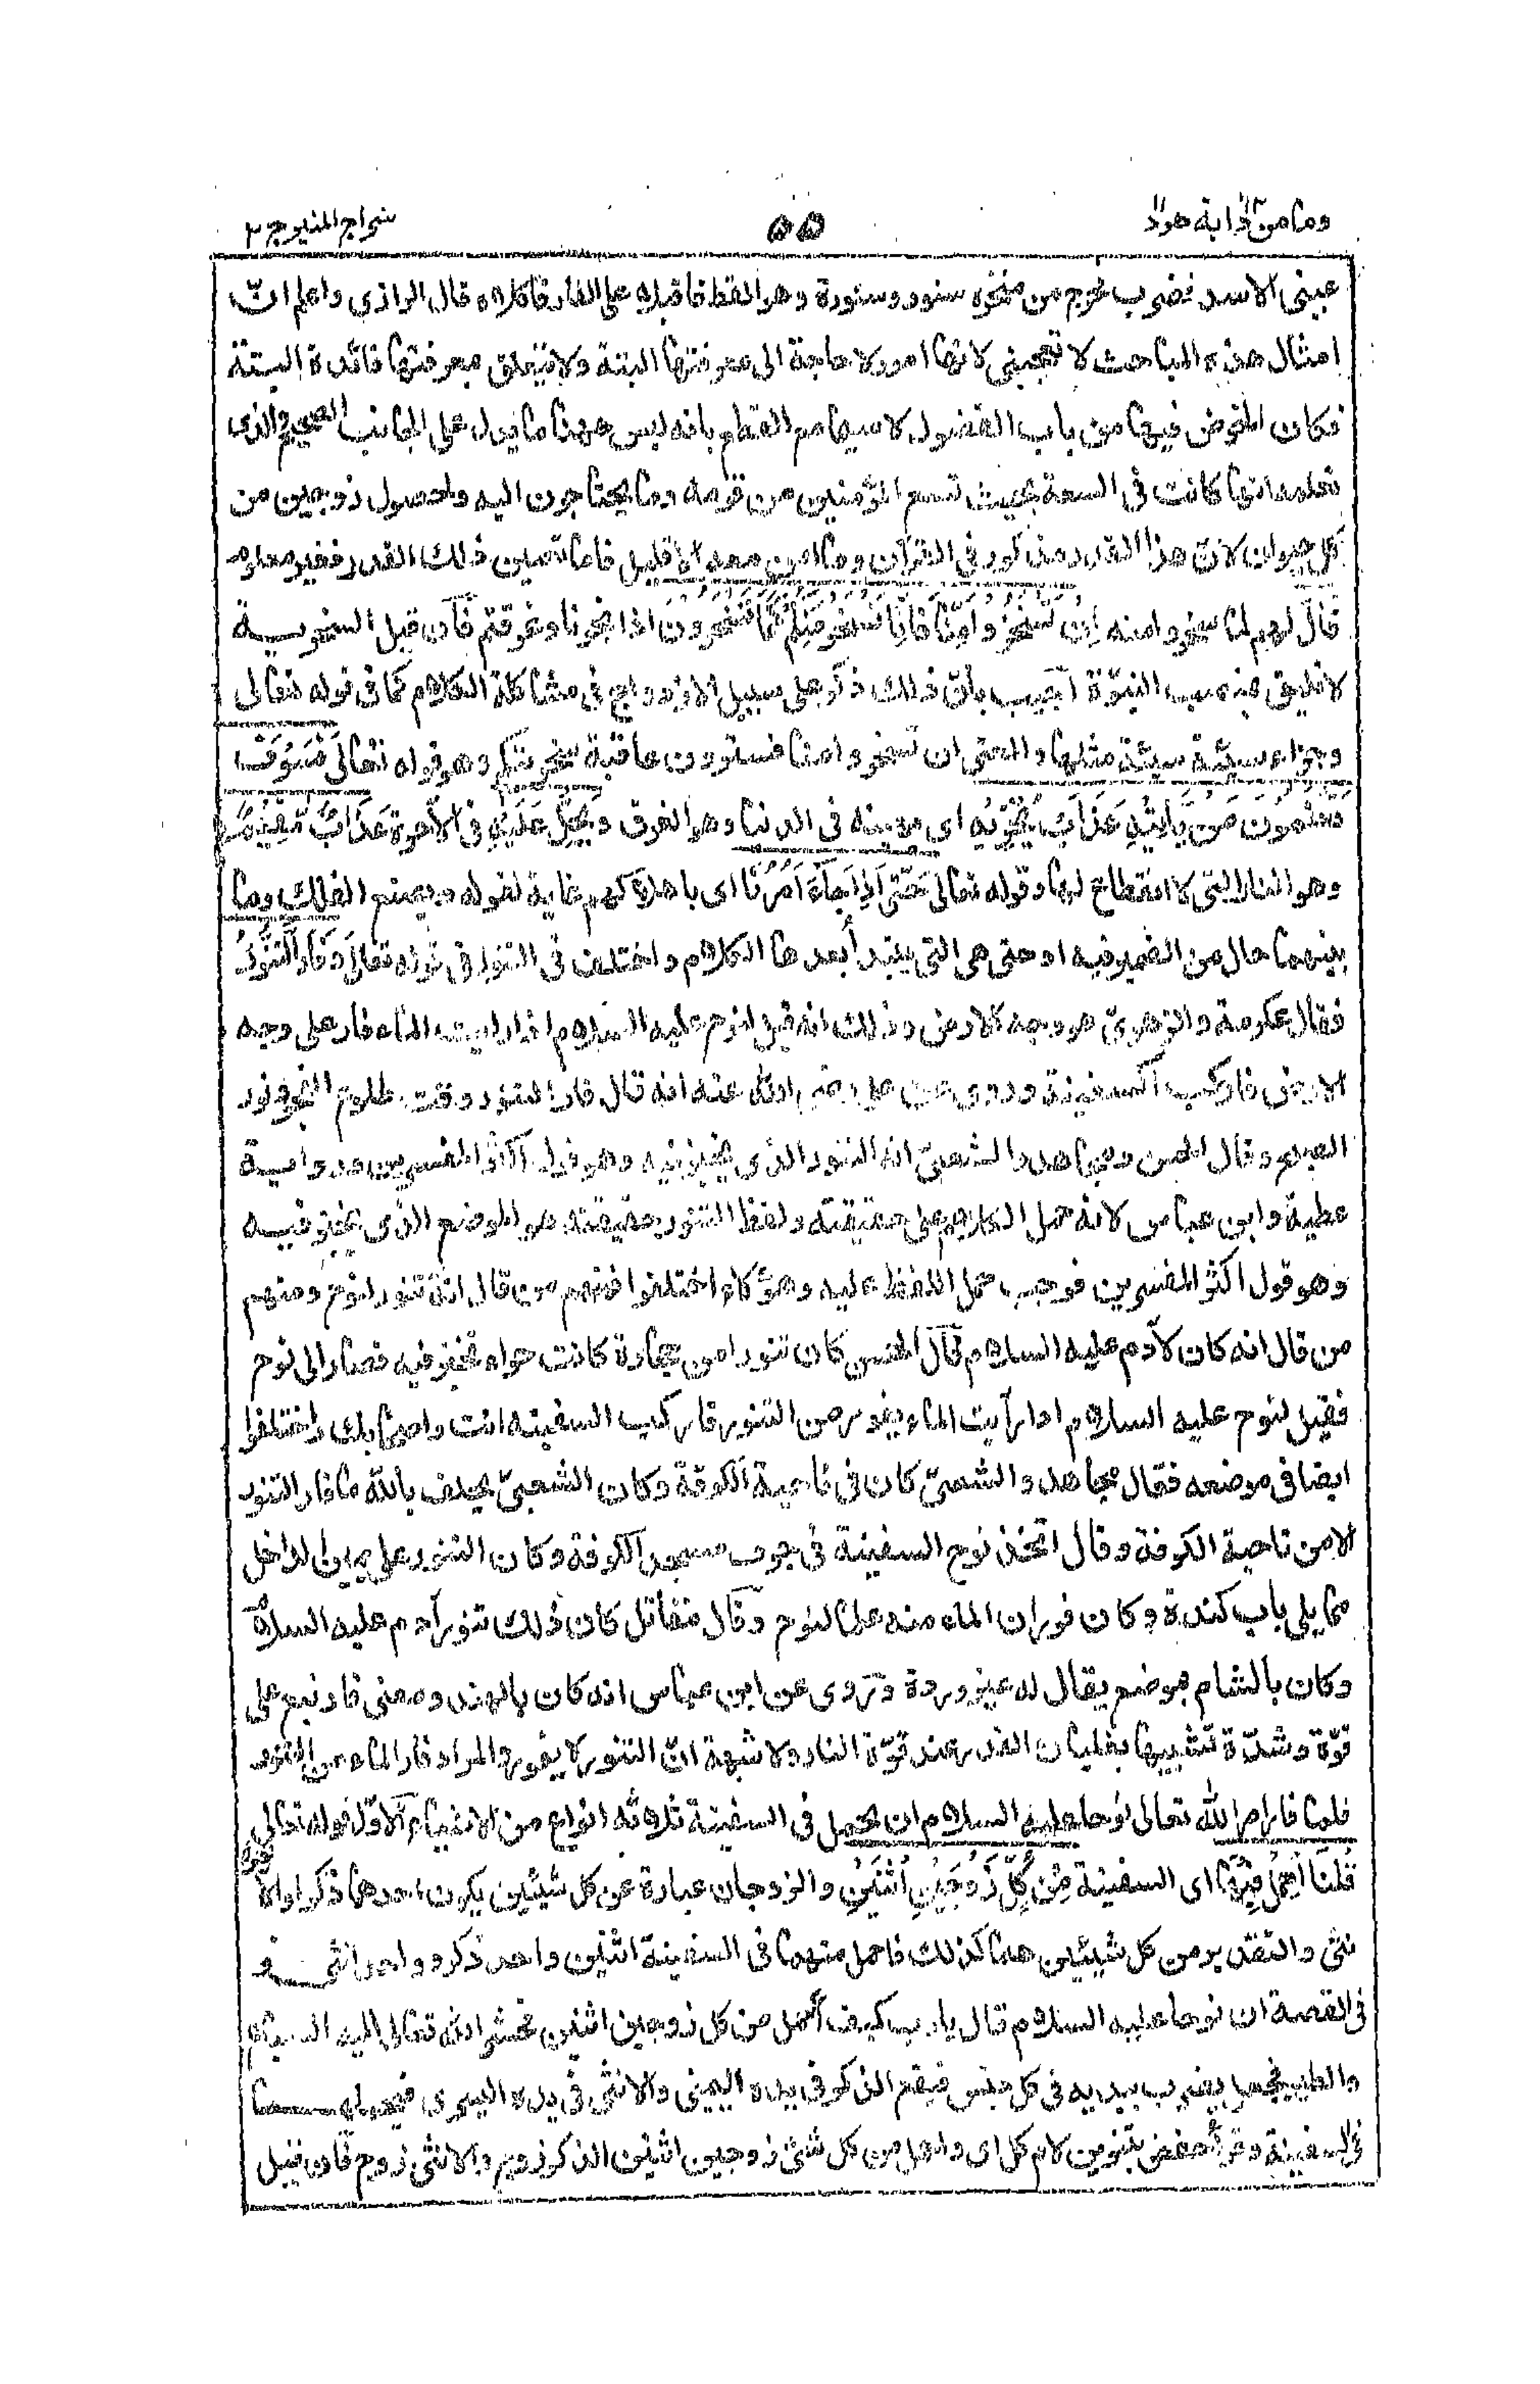 وما من دابة هود
٥٥
سراج المنير ج ٢
عينى الاسد فضرب فخرج من منخره سنور وسنورة وهو القط فاقبلا على الفار فاكلاه قال الرازى واعلم انّ
امثال هذه المباحث لا تعجبنى لانها امور لا حاجة الى معرفتها البتة ولا يتعلق بمعرفتها فائدة البتة
فكان الخوض فيها من باب الفضول لا سيما مع القطع بانه ليس ههنا ما يدل على الجانب الصحيح والذى
نعلمه انها كانت فى السعة بحيث تسع المؤمنين من قومه وما يحتاجون اليه ولحصول زوجين من
كل حيوان لان هذا القدر مذكور فى القرآن وما امن معه الا قليل فاما تعيين ذلك القدر فغير معلوم
قَالَ لهم لما سخروا منه اِنْ تَسْخَرُوْا مِنَّا فَاِنَّا نَسْخَرُ مِنْكُمْ كَمَا تَسْخَرُوْنَ اذا نجونا وغرقتم فآن قيل السخرية
لا تليق بمنصب النبوّة اجيب بانّ ذلك ذكر على سبيل الازدواج فى مشاكلة الكلام كما فى قوله تعالى
وجزاء سيئة سيئة مثلها والمعنى ان تسخروا منا فسترون عاقبة سخريتكم وهو قوله تعالى فَسَوْفَ
تَعْلَمُوْنَ مَنْ يَّاْتِيْهِ عَذَابٌ يُّخْزِيْهِ اى يهينه فى الدنيا وهو الغرق وَيَحِلُّ عَلَيْهِ فى الآخرة عَذَابٌ مُّقِيْمٌ
وهو النار التى لا انقطاع لها وقوله تعالى حَتّٰى اِذَا جَآءَ اَمْرُنَا اى باهلاكهم غاية لقوله ويصنع الفلك وما
بينهما حال من الضمير فيه او حتى هى التى يبتدأ بعدها الكلام واختلف فى التنور فى قوله تعالى وَفَارَ التَّنُّوْرُ
فقال عكرمة والزهرىّ هو وجه الارض وذلك انه قيل لنوح عليه السلام اذا رايت الماء فار على وجه
الارض فاركب السفينة وروى عن على رضى الله عنه انه قال فار التنور وقت طلوع الفجر ونور
الصبح وقال الحسن ومجاهد والشعبىّ انه التنور الذى يخبز فيه وهو قول اكثر المفسرين ورواية
عطية وابن عباس لانه حمل الكلام على حقيقته ولفظ التنور حقيقته هو الموضع الذى يخبز فيه
وهو قول اكثر المفسرين فوجب حمل اللفظ عليه وهؤلاء اختلفوا فمنهم من قال انه تنور لنوح ومنهم
من قال انه كان لآدم عليه السلام قال الحسن كان تنورا من حجارة كانت حواء تخبز فيه فصار الى نوح
فقيل لنوح عليه السلام اذا رأيت الماء يفور من التنور فاركب السفينه انت واصحابك واختلفوا
ايضا فى موضعه فقال مجاهد والشعبىّ كان فى ناحية الكوفة وكان الشعبىّ يحلف بالله ما فار التنور
الا من ناحية الكوفة وقال اتخذ نوح السفينة فى جوف مسجد الكوفة وكان التنور على يمين الداخل
مما يلى باب كندة وكان فوران الماء منه علما لنوح وقال مقاتل كان ذلك تنور آدم عليه السلام
وكان بالشام بموضع يقال له عين وردة وروى عن ابن عباس انه كان بالهند ومعنى فار نبع على
قوّة وشدّة تشبيها بغليان القدر عند قوّة النار ولا شبهة انّ التنور لا يفور والمراد فار الماء من التنور
فلما فار امر الله تعالى نوحا عليه السلام ان يحمل فى السفينة ثلاثه انواع من الاشياء الاوّل قوله تعالى
قُلْنَا احْمِلْ فِيْهَا اى السفينة مِنْ كُلٍّ زَوْجَيْنِ اثْنَيْنِ والزوجان عبارة عن كل شيئين يكون احدهما ذكرا والا
نثى والتقدير من كل شيئين هما كذلك فاحمل منهما فى السفينة اثنين واحد ذكر وواحد انثى و
فى القصة ان نوحا عليه السلام قال يارب كيف أحمل من كل زوجين اثنين فحشر الله تعالى اليه السباع
والطير فجعل يضرب بيديه فى كل جنس فيقع الذكر فى يده اليمنى والانثى فى يده اليسرى فيحملهما
فى السفينة وقرأ حفص بتنوين لام كل اى واحمل من كل شئ زوجين اثنين الذكر زوج والانثى زوج فان قيل